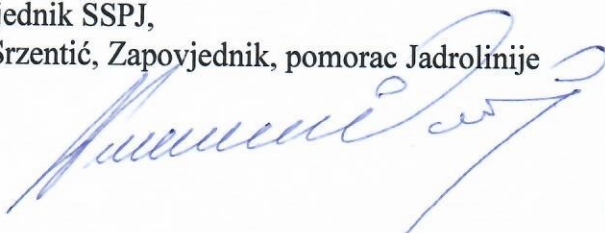 jednik SSPJ,
Srzentić, Zapovjednik, pomorac Jadrolinije